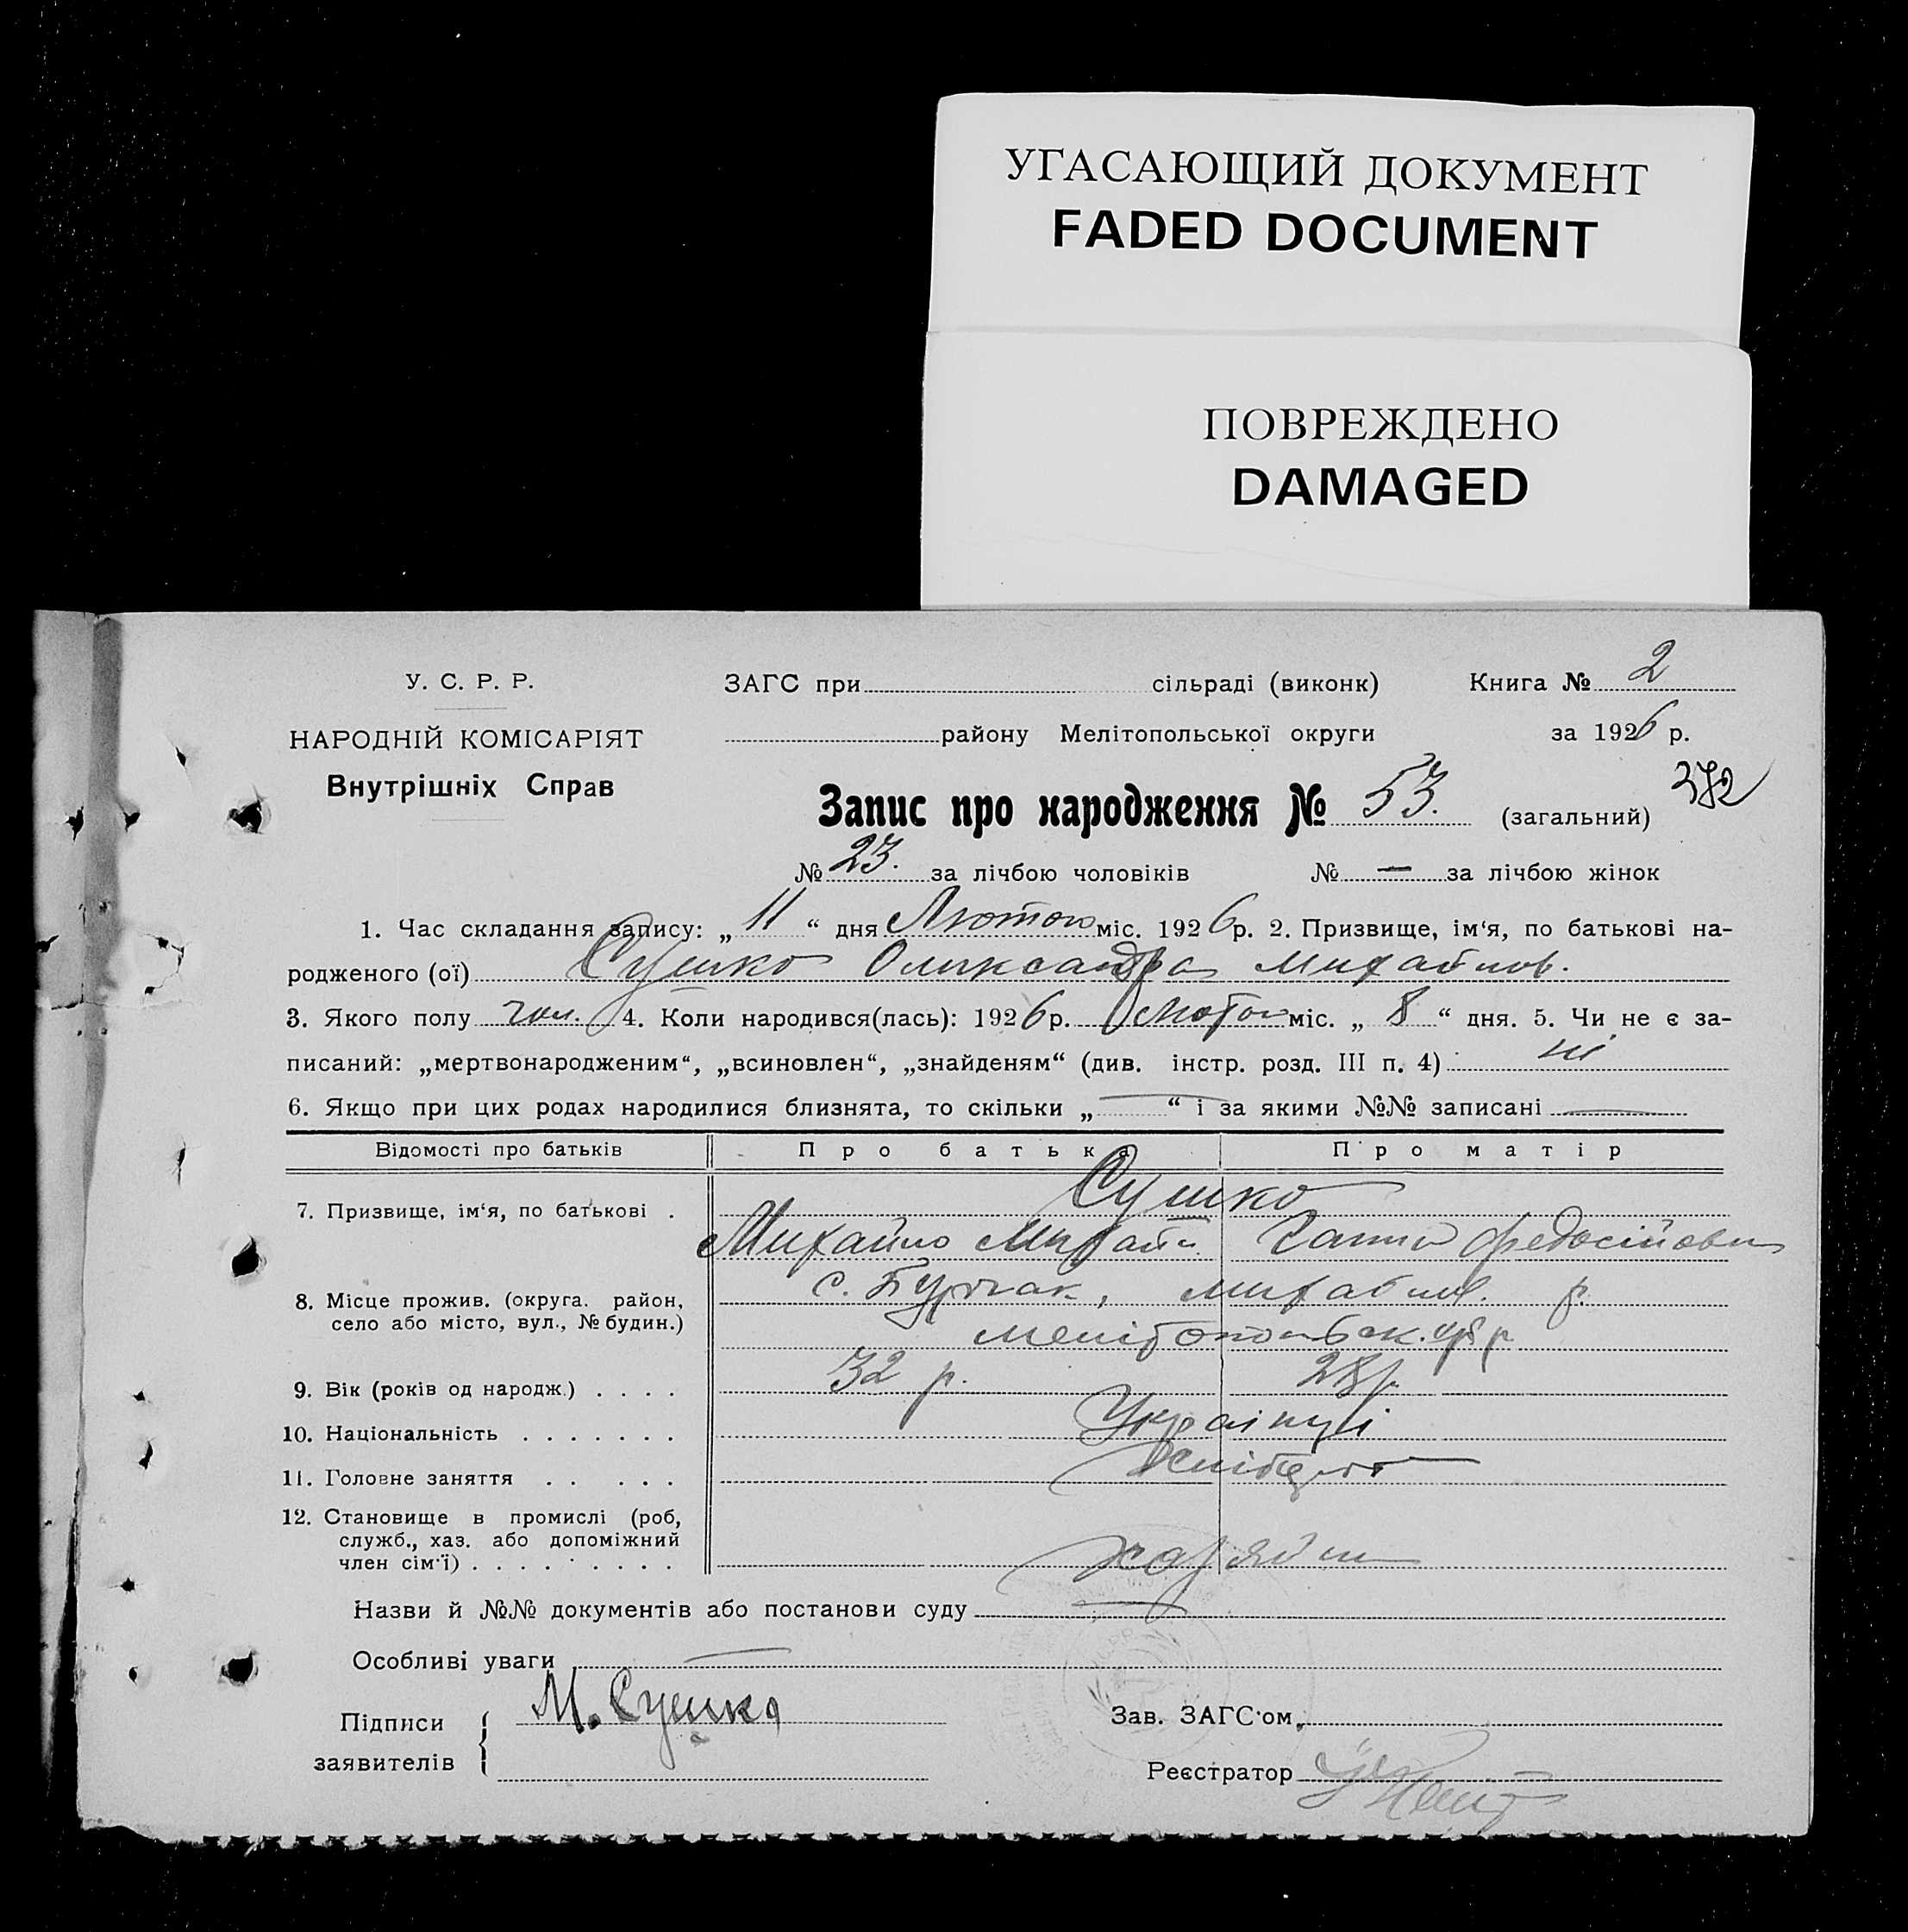 УГАСАЮЩИЙ ДОКУМЕНТ
FADED DOCUMENT
ПОВРЕЖДЕНО
DAMAGED
У. С. Р. Р.
НАРОДНІЙ КОМІСАРІЯТ
Внутрішніх Справ
ЗАГС при сільраді (виконк) Книга № 2
району Мелітопольської округи за 1926 р.
372
Запис про народження № 53. (загальний)
№ 23. за лічбою чоловіків № — за лічбою жінок
1. Час складання запису: „ 11 “ дня Лютого міс. 1926 р. 2. Призвище, ім‘я, по батькові на-
родженого (ої) Сушко Олександра Михайлов.
3. Якого полу чол. 4. Коли народився(лась): 1926 р. Лютого міс. „ 8 “ дня. 5. Чи не є за-
писаний: „мертвонародженим“, „всиновлен“, „знайденям“ (див. інстр. розд. III п. 4) ні
6. Якщо при цих родах народилися близнята, то скільки „ — “ і за якими №№ записані —
Відомості про батьків Про батька Про матір
7. Призвище, ім‘я, по батькові . Сушко
Михайло Михайл. Ганна Федосійовна
8. Місце прожив. (округа. район, село або місто, вул., № будин.) с. Бурчак, Михайлів. р.
Мелітопольск. окр.
9. Вік (років од народж.) . . . . 32 р. 28 р.
10. Національність . . . . . . . Українці
11. Головне заняття . . . . . Хлібороб
12. Становище в промислі (роб,
служб., хаз. або допоміжний
член сім‘ї) . . . . . . . . . хазяїн
Назви й №№ документів або постанови суду —
Особливі уваги —
Підписи
заявителів
М. Сушко
Зав. ЗАГС‘ом
Реєстратор